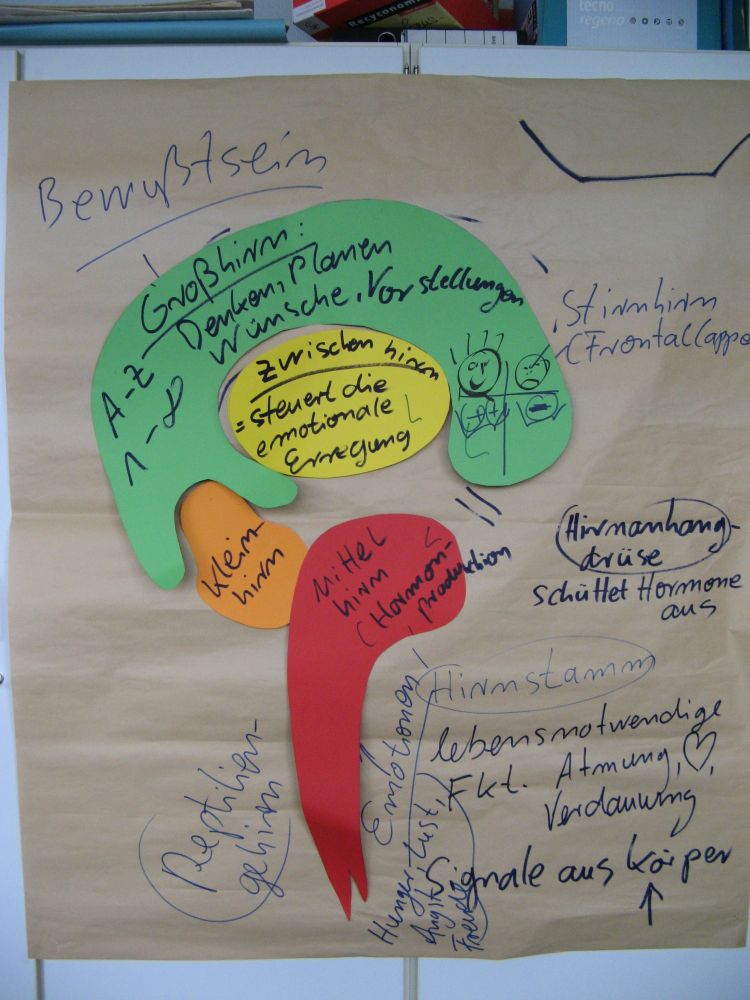 Recyconomi
tecno
regeno
Bewußtsein
Großhirn:
Denken, Planen
Wünsche, Vorstellungen
A-Z
1-∞
Stirnhirn
(Frontallappe
Zwischenhirn
= steuert die
emotionale
Erregung
Klein-
hirn
Mittel
hirn
(Hormon-
produktion
Hirnanhang-
drüse
schüttet Hormone
aus
Hirnstamm
lebensnotwendige
Fkt. Atmung, ♡,
Verdauung
Signale aus Körper
↑
Emotionen
Hunger-Lust,
Angst,
Freude
Reptilien-
gehirn